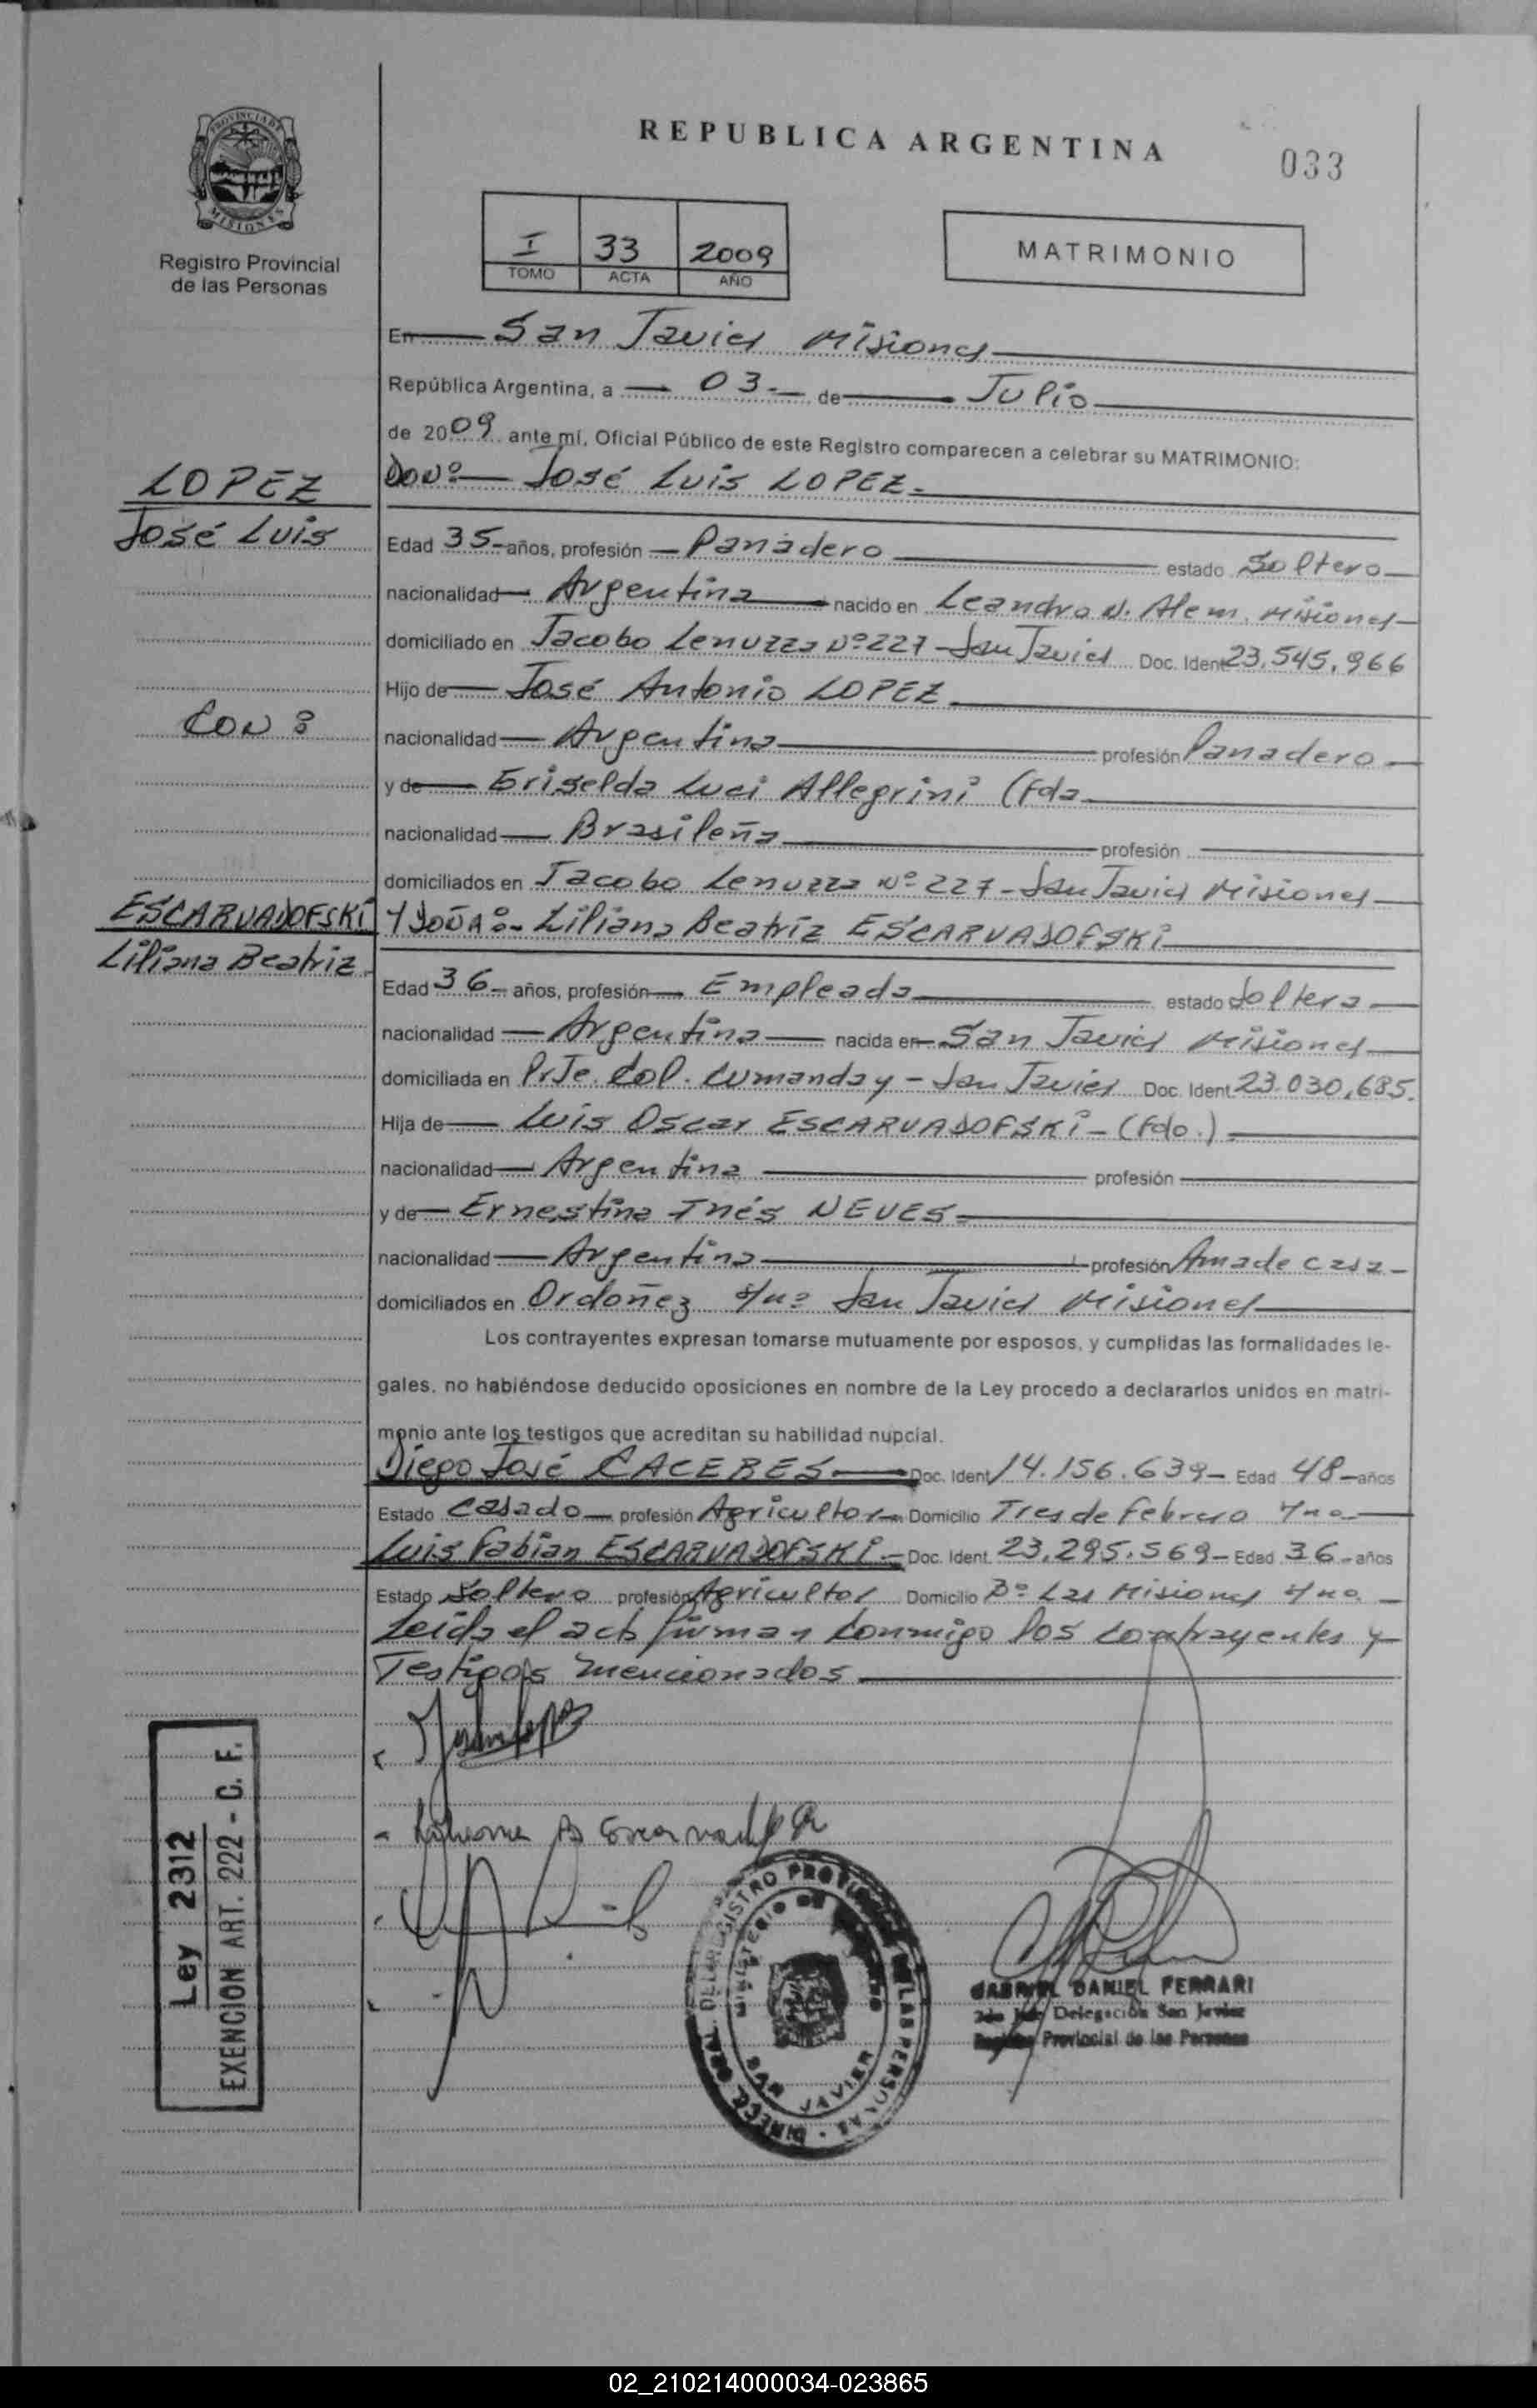 REPUBLICA ARGENTINA
033
PROVINCIA DE MISIONES
Registro Provincial
de las Personas
I 33 2009
TOMO ACTA AÑO
MATRIMONIO
En San Javier Misiones
República Argentina, a 03 de Julio
de 2009 ante mí, Oficial Público de este Registro comparecen a celebrar su MATRIMONIO:
LOPEZ
José Luis
Don: José Luis LOPEZ.
Edad 35 años, profesión Panadero estado Soltero
nacionalidad Argentina nacido en Leandro N. Alem. Misiones
domiciliado en Jacobo Lenuzza Nº 227 - San Javier Doc. Ident 23.545.966
Hijo de José Antonio LOPEZ
CON :
nacionalidad Argentina profesión Panadero
y de Griselda Luci Allegrini (Fda
nacionalidad Brasileña profesión
domiciliados en Jacobo Lenuzza Nº 227 - San Javier Misiones
ESCARVADOFSKI
Liliana Beatriz
Y DOÑA:- Liliana Beatriz ESCARVADOFSKI
Edad 36 años, profesión Empleada estado Soltera
nacionalidad Argentina nacida en San Javier Misiones
domiciliada en PrJe. Col. Cumanday - San Javier Doc. Ident 23.030.685.
Hija de Luis Oscar ESCARVADOFSKI - (Fdo.)
nacionalidad Argentina profesión
y de Ernestina Inés NEVES
nacionalidad Argentina profesión Ama de casa
domiciliados en Ordoñez s/nº San Javier Misiones
Los contrayentes expresan tomarse mutuamente por esposos, y cumplidas las formalidades le-
gales, no habiéndose deducido oposiciones en nombre de la Ley procedo a declararlos unidos en matri-
monio ante los testigos que acreditan su habilidad nupcial.
Diego José CACERES Doc. Ident 14.156.639 Edad 48 años
Estado Casado profesión Agricultor Domicilio Tres de Febrero s/nº
Luis Fabian ESCARVADOFSKI Doc. Ident. 23.295.569 Edad 36 años
Estado Soltero profesión Agricultor Domicilio Bº Las Misiones s/nº
Leída el acta firman conmigo los contrayentes y
Testigos mencionados
Ley 2312
EXENCION ART. 222 - C. F.
DIREC. GRAL. DEL REGISTRO PROVINCIAL DE LAS PERSONAS
MINISTERIO DE GOBIERNO
SAN JAVIER
GABRIEL DANIEL FERRARI
Delegación San Javier
Registro Provincial de las Personas
02_210214000034-023865